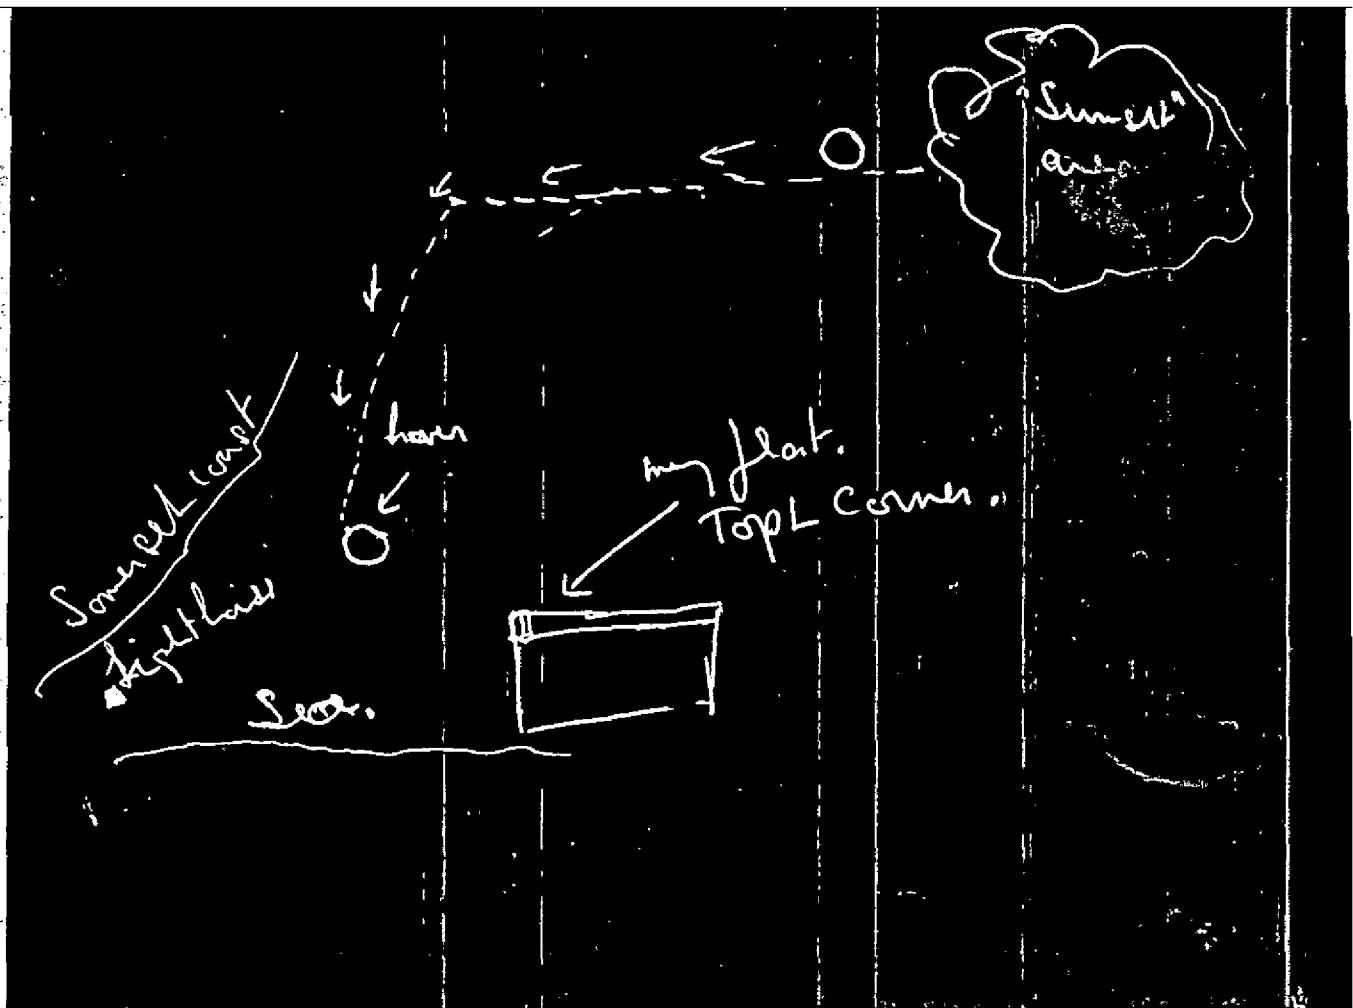 "Sunset"
area
hover
my flat.
Top L Corner.
Somerset coast
Lighthouse
Sea.